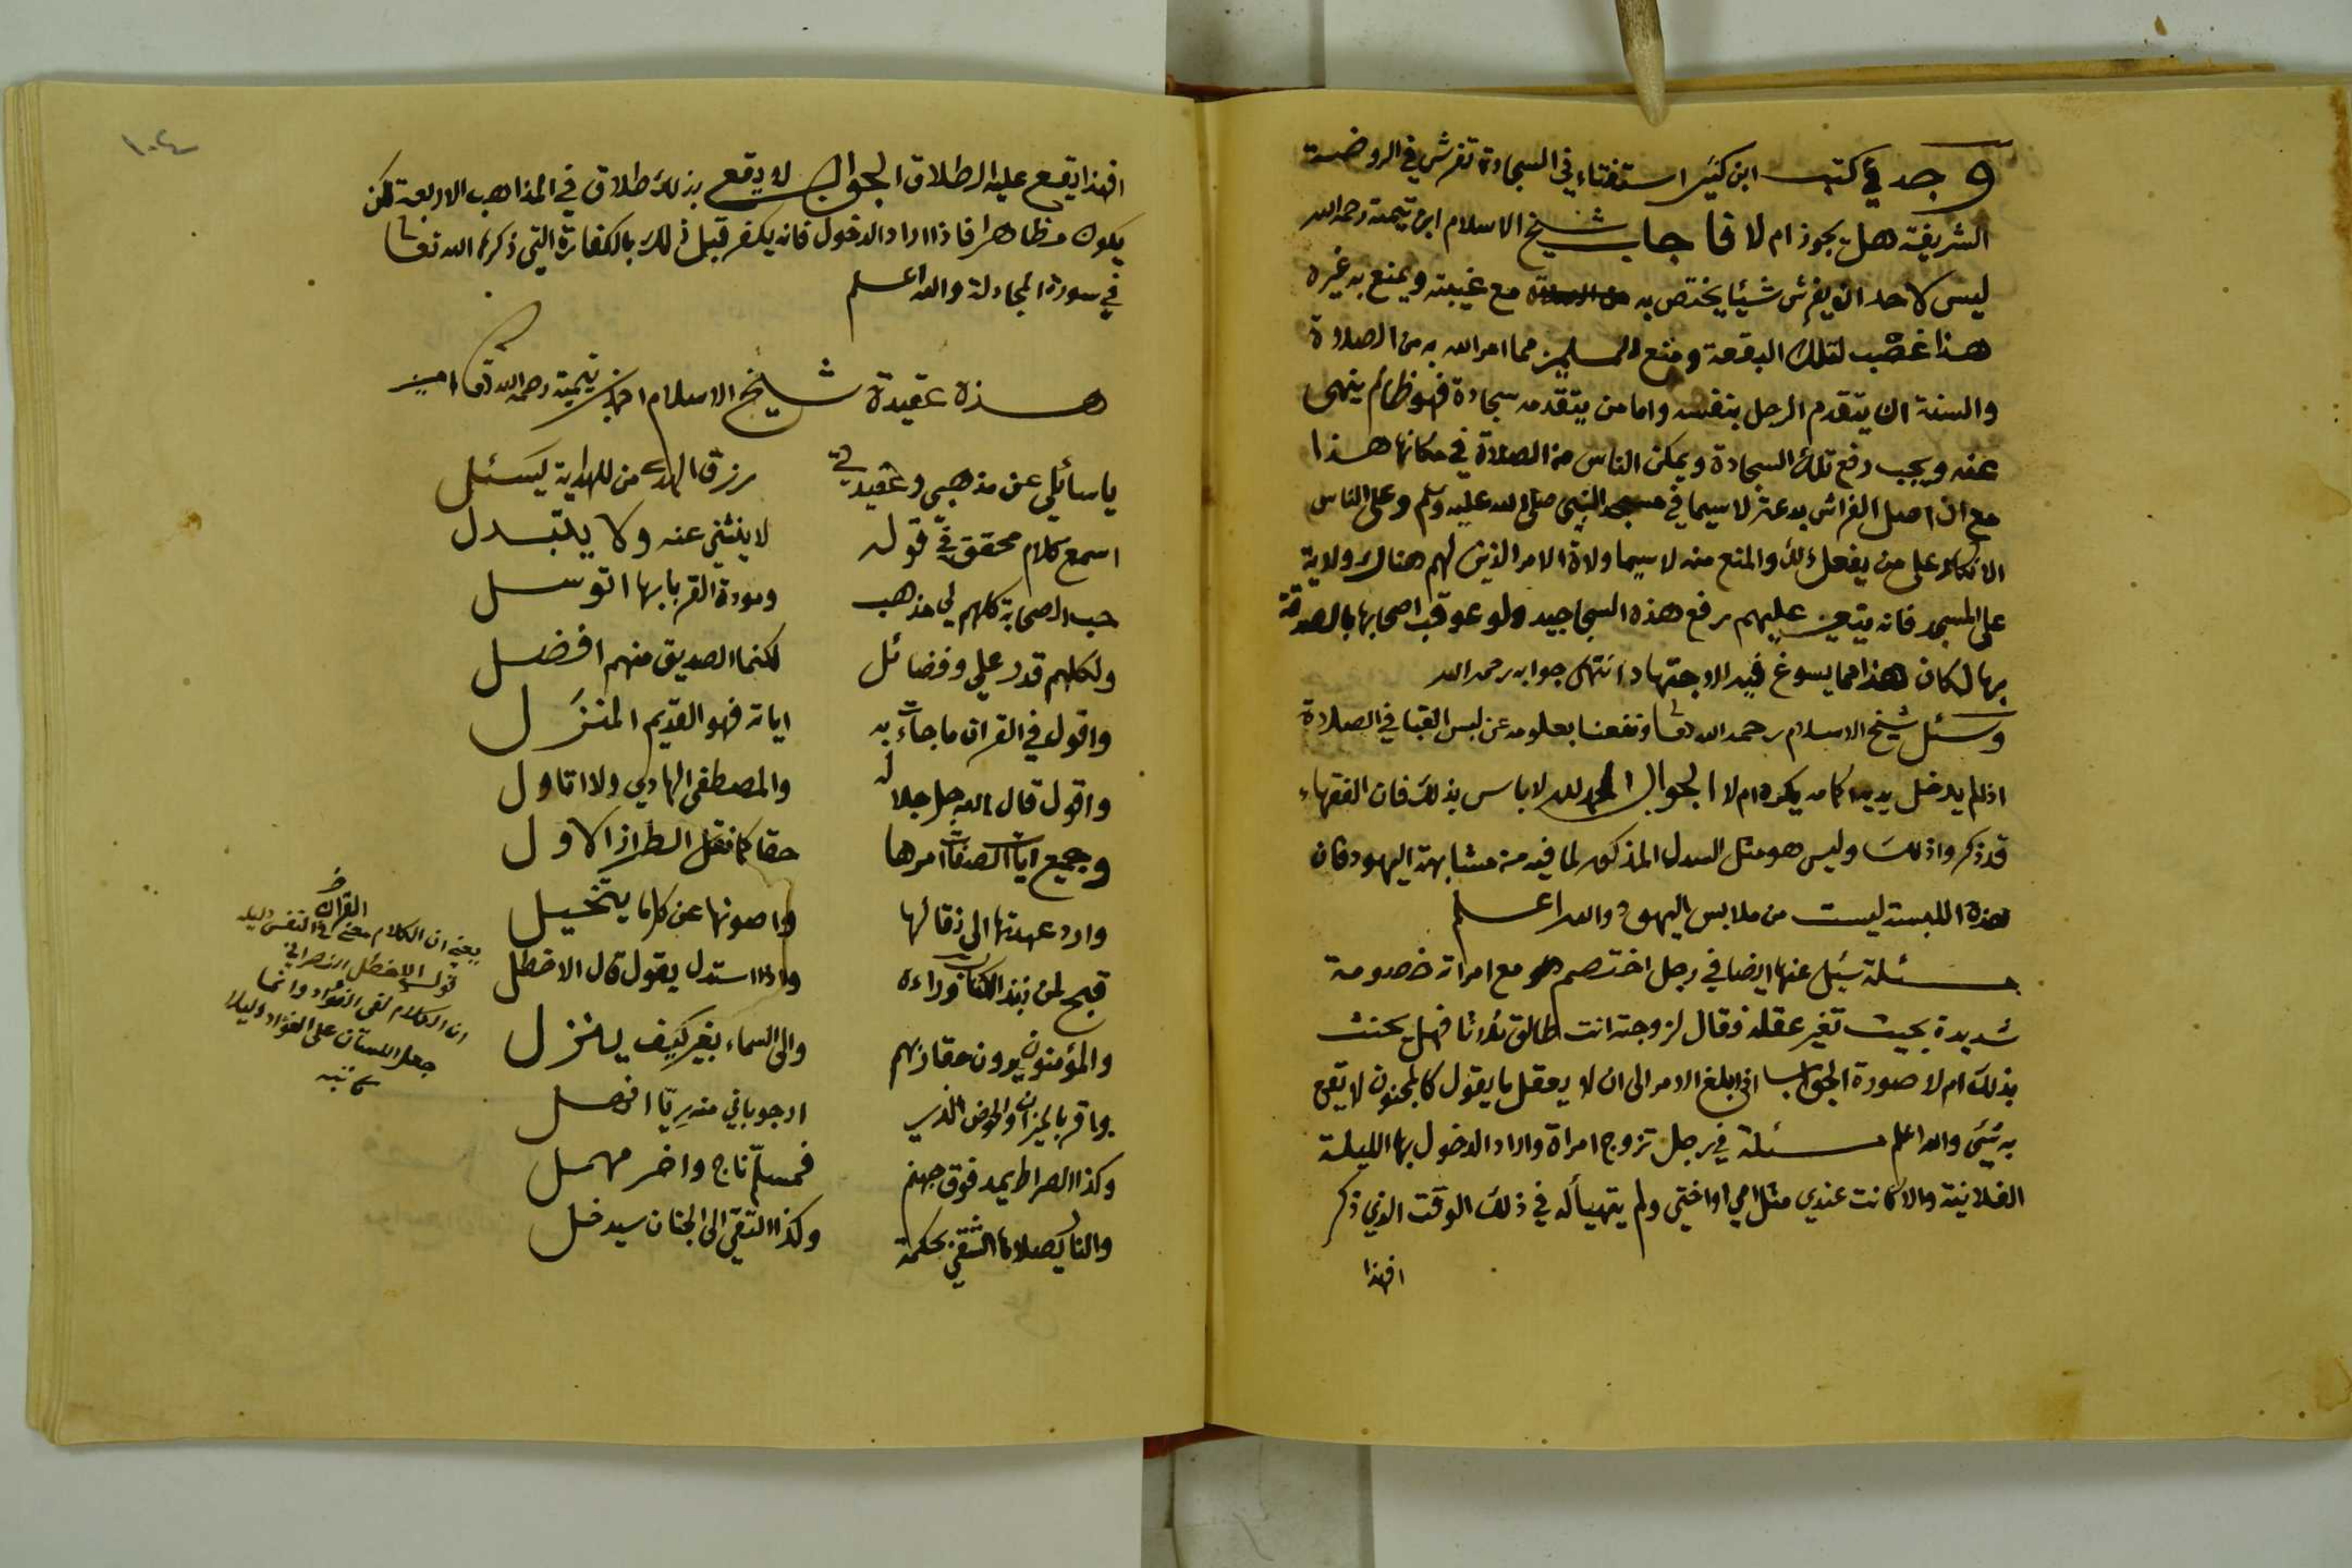 وجد في كتب ابن كثير استفتاء في السجادة تفرش في الروضة
الشريفة هل يجوز ام لا فاجاب شيخ الاسلام ابن تيمية رحمه الله
ليس لاحد ان يفرش شيئا يختص به مع غيبته ويمنع به غيره
هذا غصب لتلك البقعة ومنع المسلمين مما امر الله به من الصلاة
والسنة ان يتقدم الرجل بنفسه واما من يتقدمه سجادة فهو ظالم ينهى
عنه ويجب رفع تلك السجادة ويمكن الناس من الصلاة في مكانها هذا
مع ان اصل الفراش بدعة لا سيما في مسجد النبي صلى الله عليه وسلم وعلى الناس
الانكار على من يفعل ذلك والمنع منه لا سيما ولاة الامر الذين لهم هنالك ولاية
على المسجد فانه يتعين عليهم رفع هذه السجاجيد ولو عوقب اصحابها بالصدقة
بها لكان هذا مما يسوغ فيه الاجتهاد انتهى جوابه رحمه الله
وسئل شيخ الاسلام رحمه الله تعا ونفعنا بعلومه عن لبس القبا في الصلاة
اذا لم يدخل يديه اكمامه يكره ام لا الجواب الحمد لله لا باس بذلك فان الفقهاء
قد ذكروا ذلك وليس هو مثل السدل المذكور لما فيه من مشابهة اليهود فان
هذه اللبسة ليست من ملابس اليهود والله اعلم
مسئلة سئل عنها ايضا في رجل اختصم هو مع امراته خصومة
شديدة بحيث تغير عقله فقال لزوجته انت طالق ثلاثا فهل يحنث
بذلك ام لا صورة الجواب اذا بلغ الامر الى ان لا يعقل ما يقول كالمجنون لا تقع
به شيئ والله اعلم مسئلة في رجل تزوج امراة واراد الدخول بها الليلة
الفلانية والا كانت عندي مثل امي او اختي ولم يتهيأ له في ذلك الوقت الذي ذكر
افهذا
١٠٤
افهذا يقع عليه الطلاق الجواب لا يقع بذلك طلاق في المذاهب الاربعة لكن
يكون مظاهرا فاذا اراد الدخول فانه يكفر قبل ذلك بالكفارة التي ذكرها الله تعا
في سورة المجادلة والله اعلم
هذه عقيدة شيخ الاسلام احمد بن تيمية رحمه الله تعا امين
ياسائلي عن مذهبي وعقيدتي رزق الهدى من للهداية يسئل
اسمع كلام محقق في قوله لا ينثني عنه ولا يتبدل
حب الصحابة كلهم لي مذهب ومودة القربا بها اتوسل
ولكلهم قدر علي وفضائل لكنما الصديق منهم افضل
واقول في القران ما جاءت به اياته فهو القديم المنزل
واقول قال الله جل جلاله والمصطفى الهادي ولا اتاول
وجميع ايات الصفات امرها حقا كما نقل الطراز الاول
وارد عهدتها الى نقالها واصونها عن كل ما يتخيل
قبح لمن نبذ الكتاب وراءه واذا استدل يقول قال الاخطل
والمؤمنون يرون حقا ربهم والى السماء بغير كيف ينزل
واقر بالميزان والحوض الذي ارجو باني منه ريّا انهل
وكذا الصراط يمد فوق جهنم فمسلّم ناج واخر مهمل
والنار يصلاها الشقي بحكمة وكذا التقي الى الجنان سيدخل
القران
يعني ان الكلام معنى في النفس دليله
قول الاخطل النصراني
ان الكلام لفي الفؤاد وانما
جعل اللسان على الفؤاد دليلا
كاتبه